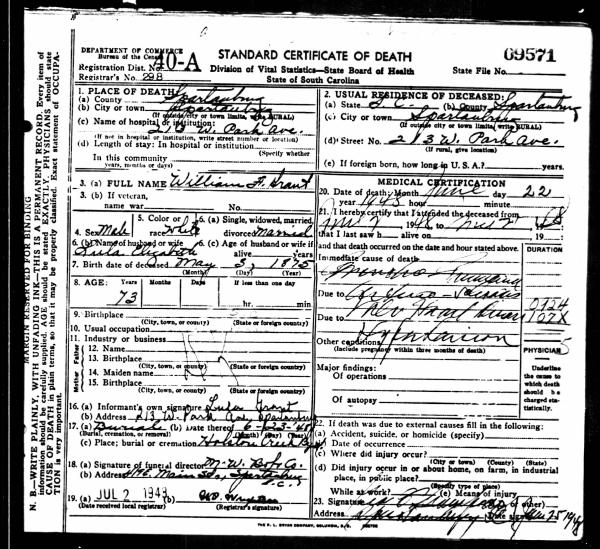 DEPARTMENT OF COMMERCE
Bureau of the Census
Registration Dist. No. 40-A
Registrar's No. 298
STANDARD CERTIFICATE OF DEATH
Division of Vital Statistics—State Board of Health
State of South Carolina
69571
State File No.
MARGIN RESERVED FOR BINDING
N. B.—WRITE PLAINLY, WITH UNFADING INK—THIS IS A PERMANENT RECORD. Every item of
information should be carefully supplied. AGE should be stated EXACTLY. PHYSICIANS should state
CAUSE OF DEATH in plain terms, so that it may be properly classified. Exact statement of OCCUPA-
TION is very important.
1. PLACE OF DEATH
(a) County Spartanburg
(b) City or town Spartanburg
(If outside city or town limits, write RURAL)
(c) Name of hospital or institution:
213 W. Park Ave.
(If not in hospital or institution, write street number or location)
(d) Length of stay: In hospital or institution
(Specify whether
In this community
years, months or days)
2. USUAL RESIDENCE OF DECEASED:
(a) State S.C. (b) County Spartanburg
(c) City or town Spartanburg
(If outside city or town limits, write RURAL)
(d) Street No. 213 W. Park Ave.
(If rural, give location)
(e) If foreign born, how long in U. S. A.? years.
3. (a) FULL NAME William F. Grant
3. (b) If veteran,
name war No.
4. Sex Male
5. Color or race White
6. (a) Single, widowed, married,
divorced Married
6. (b) Name of husband or wife
Lula Elizabeth
6. (c) Age of husband or wife if
alive years
7. Birth date of deceased May 3, 1875
(Month) (Day) (Year)
8. AGE: Years Months Days If less than one day
73 hr. min.
9. Birthplace
(City, town, or county) (State or foreign country)
10. Usual occupation
11. Industry or business
Father
12. Name
13. Birthplace
(City, town, or county) (State or foreign country)
Mother
14. Maiden name
15. Birthplace
(City, town, or county) (State or foreign country)
16. (a) Informant's own signature Lula Grant
(b) Address 213 W. Park Ave, Spartanburg
17. (a) Burial (b) Date thereof 6-23-48
(Burial, cremation, or removal) (Month) (Day) (Year)
(c) Place; burial or cremation Holston Creek
18. (a) Signature of funeral director
(b) Address Main St, Spartanburg
S.C.
19. (a) JUL 2 1948 (b)
(Date received local registrar) (Registrar's signature)
MEDICAL CERTIFICATION
20. Date of death: Month June day 22
year 1948 hour minute
21. I hereby certify that I attended the deceased from
19 to 19
that I last saw h alive on 19
and that death occurred on the date and hour stated above.
DURATION
Immediate cause of death
Broncho-Pneumonia
Due to
Due to
107X
Other conditions Hypertension
(Include pregnancy within three months of death)
PHYSICIAN
Major findings:
Of operations
Of autopsy
Underline
the cause
to which
death
should be
charged sta-
tistically.
22. If death was due to external causes fill in the following:
(a) Accident, suicide, or homicide (specify)
(b) Date of occurrence
(c) Where did injury occur?
(City or town) (County) (State)
(d) Did injury occur in or about home, on farm, in industrial
place, in public place?
(Specify type of place)
While at work? (e) Means of injury
23. Signature (M. D. or other)
Address Spartanburg Date signed June 25 1948
THE R. L. BRYAN COMPANY, COLUMBIA, S. C.